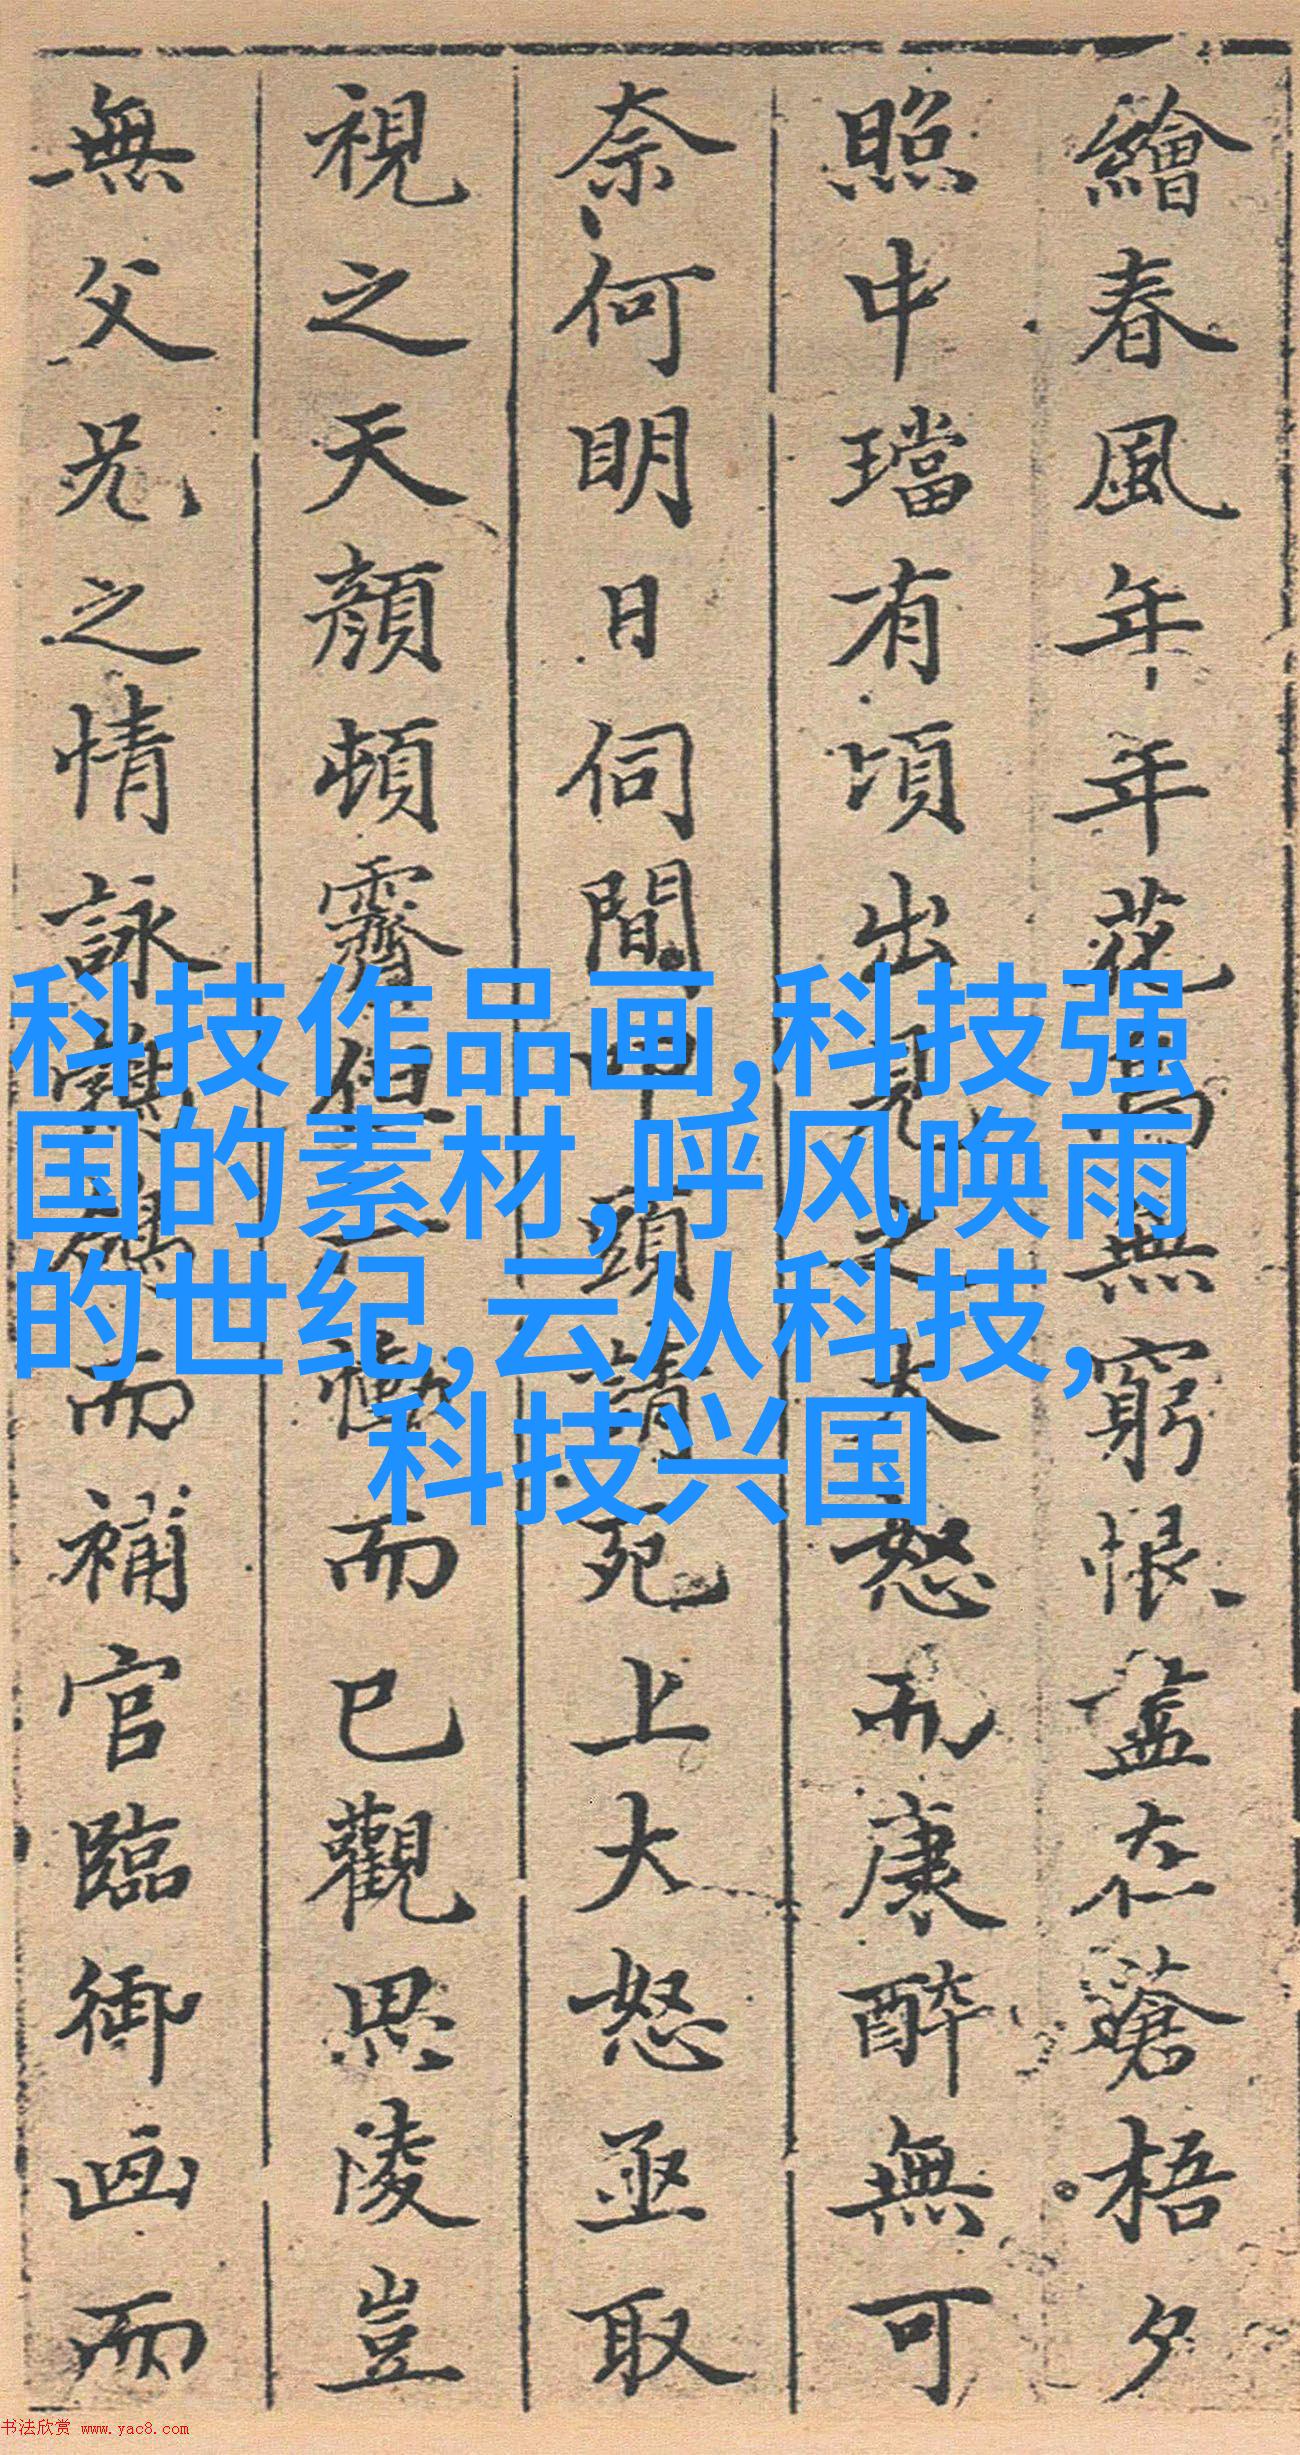 繪春風年年花鳥無窮恨盡在蒼梧夕
照中璫有頃出見之大怒而康醉無可
奈何明日伺間叩頭請死上大怒亟取
視之天顏頓霽但一慟而已觀思陵豈
無父兄之情詠鶺鴒而補官臨御画而
科技作品画,科技强
国的素材,呼风唤雨
的世纪,云从科技,
科技兴国
书法欣赏 www.yac8.com